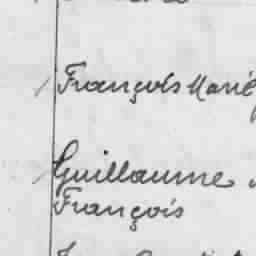 François Marie
Guillaume
François